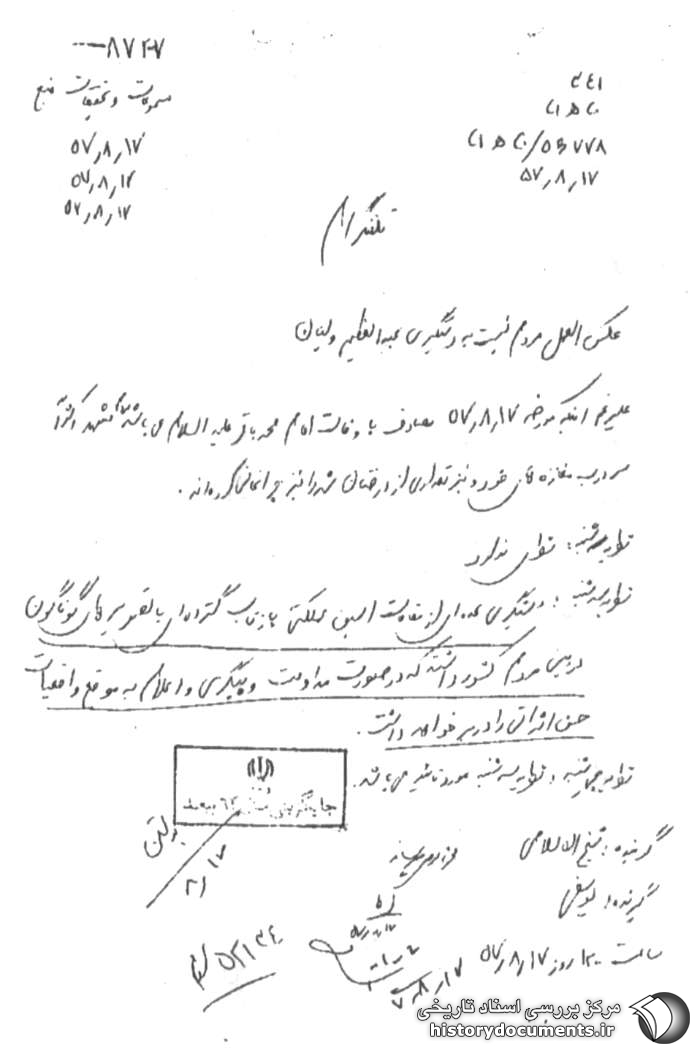 ۸۷۴۷
۳۴۱
مسموعات و تحقیقات منبع
۵۷٫۸٫۱۷
۵۷٫۸٫۱۷
۵۷٫۸٫۱۷
۵۷٫۸٫۱۷
تلگرام
عکس العمل مردم نسبت به دستگیری عبدالعظیم ولیان
علیرغم اینکه مورخه ۵۷٫۸٫۱۷ مصادف با وفات امام محمد باقر علیه السلام می باشد مشهد
سردرب مغازه های خود و نیز تعدادی از درختان را نیز چراغانی کرده اند.
نظریه شنبه: نظری ندارد
نظریه سه شنبه: دستگیری عده ای از مقامات اسبق مملکتی بازتاب گسترده ای با تفسیرهای گوناگون
در بین مردم کشور داشته که در صورت مداومت و پیگیری و اعلام به موقع واقعیات
حسن اثراتی را در بر خواهد داشت.
نظریه چهارشنبه: نظریه سه شنبه مورد تأیید می باشد.
جایگزینی
بولتن
گوینده: شیخ الاسلامی
گیرنده: یوسفی
ساعت ۱۲۰۰ روز ۵۷٫۸٫۱۷
مرکز بررسی اسناد تاریخی
historydocuments.ir